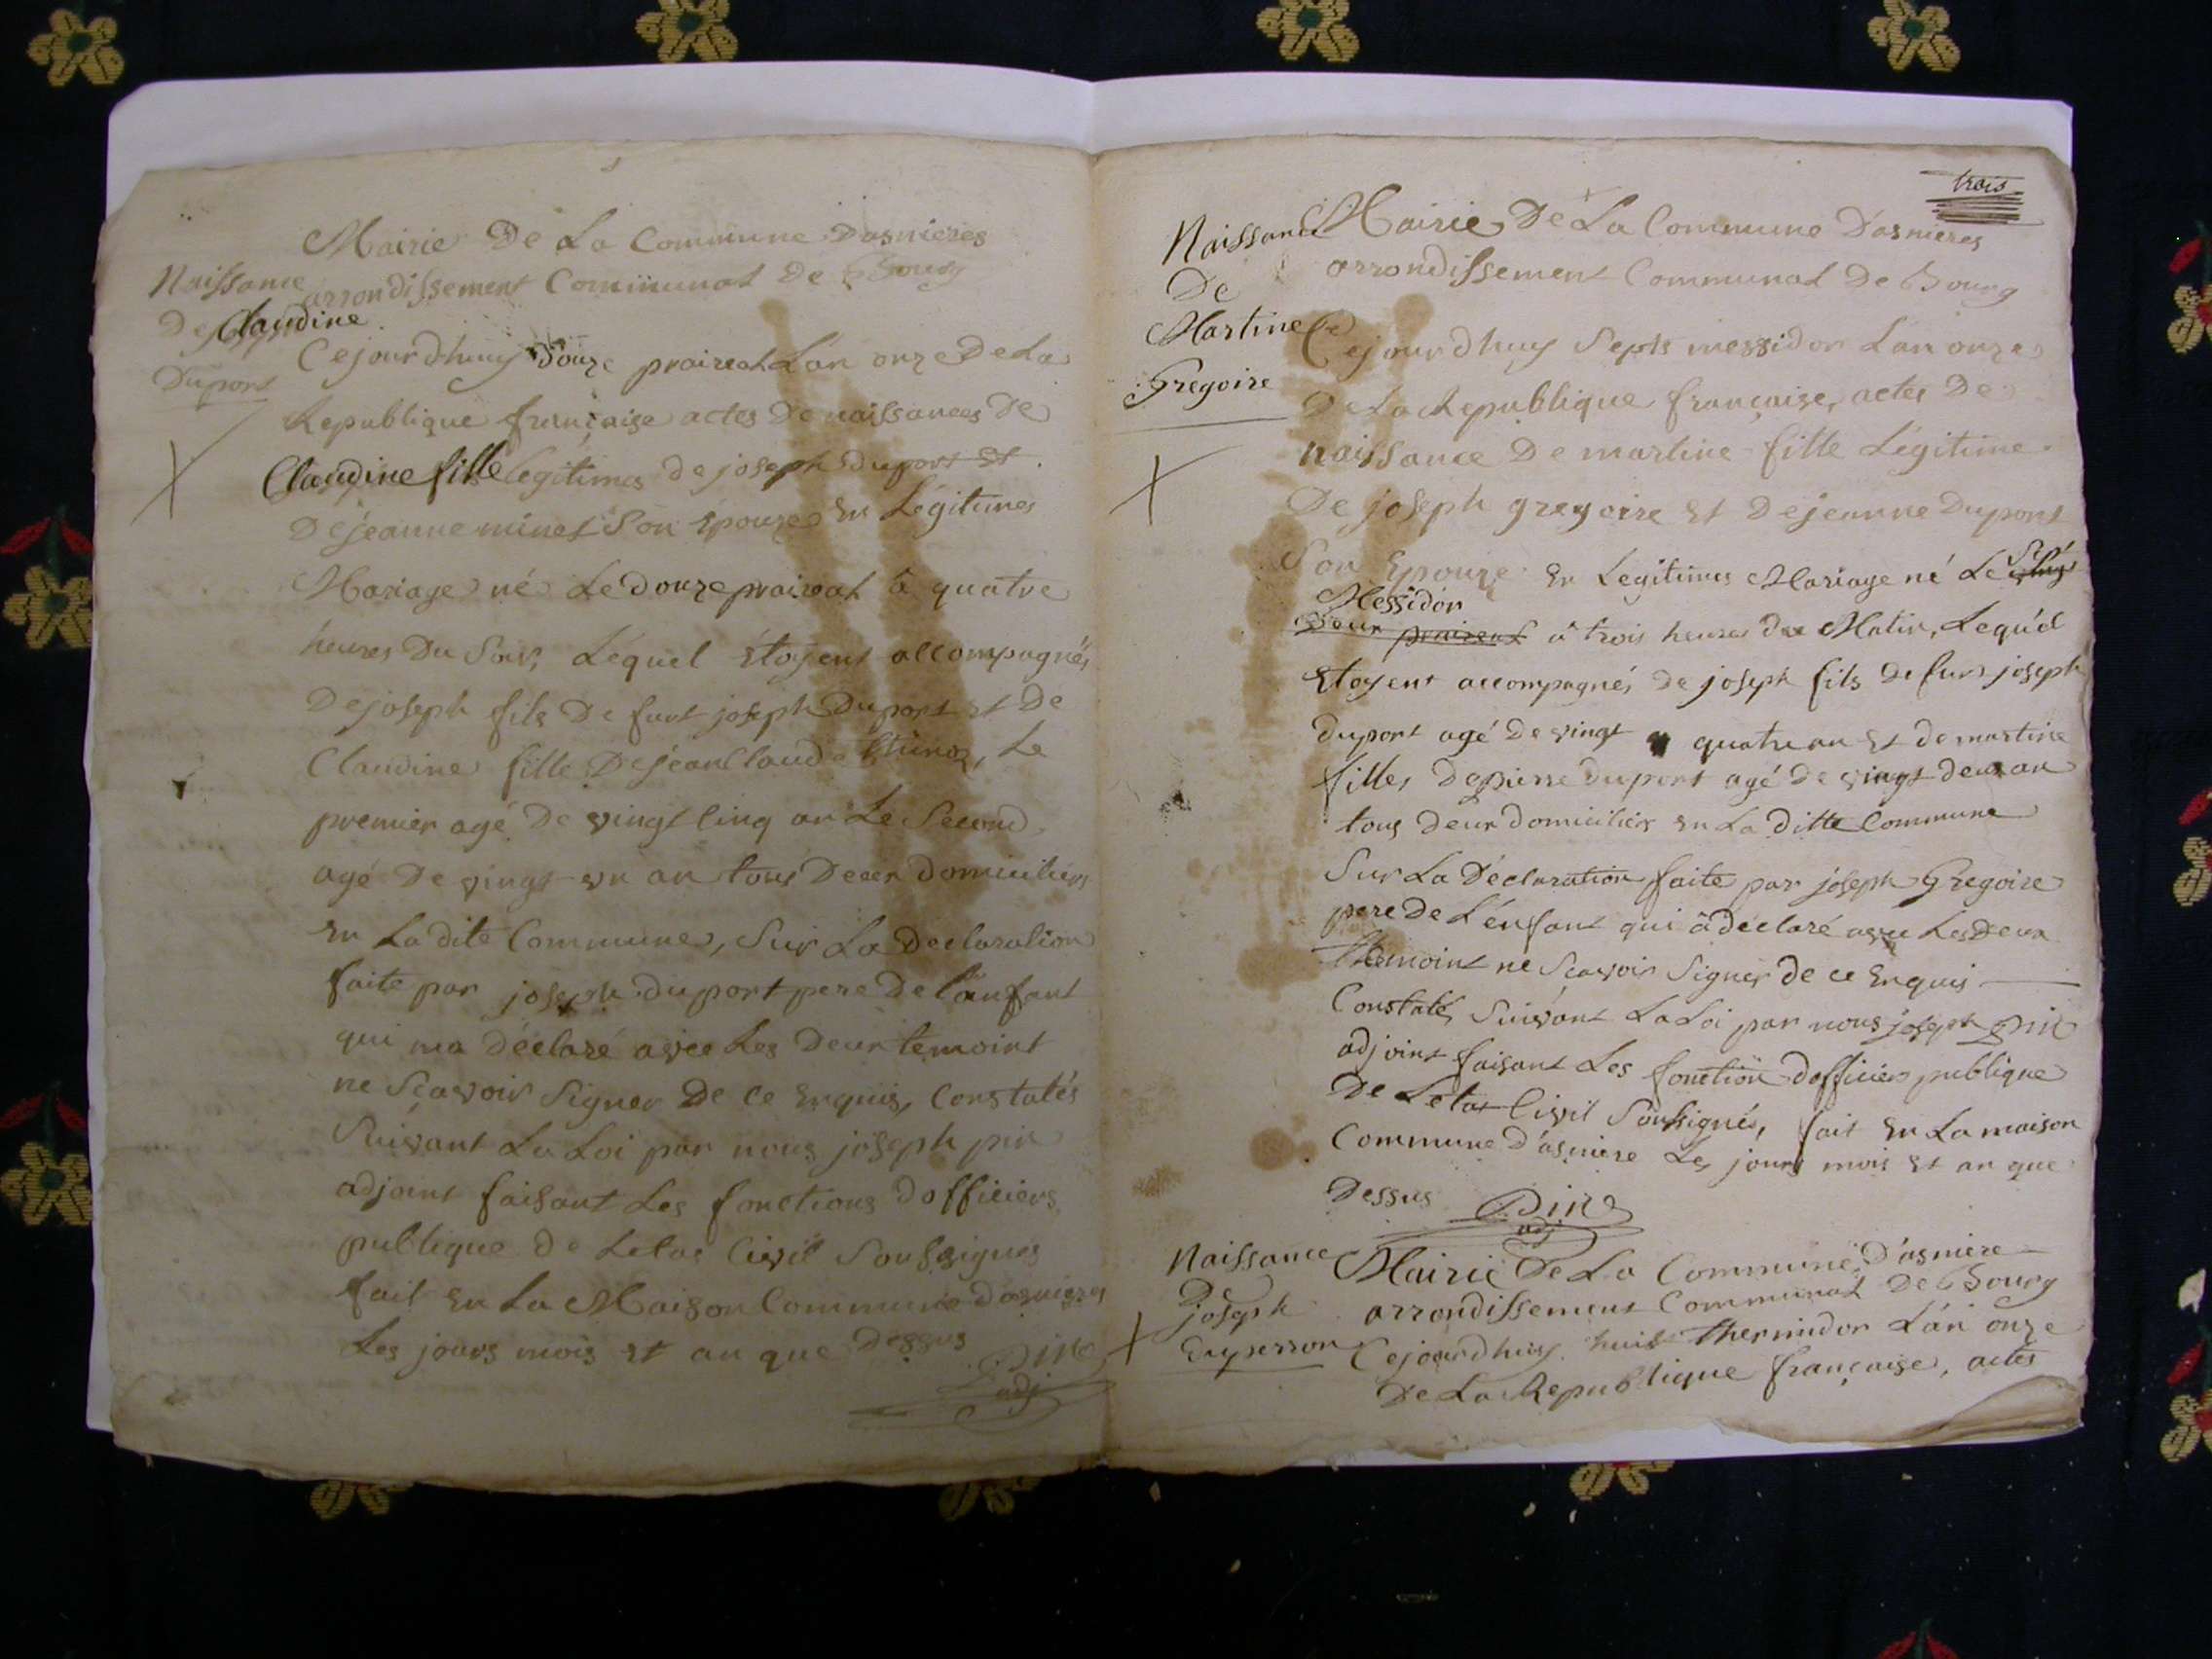 Mairie De La Commune D'asnieres
arrondissement Communal De Bourg
Naissance
De Claudine
Duport
Cejourdhuy douze praireal L'an onze De La
Republique française actes De naissances De
Claudine fille legitimes de joseph duport Et
De jeanne minet Son Epouze En Légitimes
Mariage né Le douze praireal à quatre
heures Du Soir, Léquel Etoyent accompagnés
De joseph fils De furt joseph Duport et De
Claudine fille De jean Claude, Le
premier agé De vingt Cinq an Le Second
agé De vingt un an tous Deux Domiciliers
En La dite Commune, Sur La Declaration
faite par joseph duport pere De L'anfant
qui ma déclaré avec Les Deux temoint
ne Sçavoir Signer De Ce Enquis, Constatés
Suivant La Loi par nous joseph pin
adjoint faisant Les fonctions D'officiers
publique de Letat Civil Soussignés
fait En La Maison Commune d'asnieres
Les jours mois Et an que Dessus
Pin
adj
trois
Naissance
De
Martine
Gregoire
Mairie De La Commune D'asnieres
arrondissement Communal De Bourg
Cejourdhuy Septs messidor L'an onze
De La Republique française, actes De
naissance De martine fille Légitime
De joseph gregoire Et De jeanne Duport
Son Epouze En Legitimes Mariage né Le Sept
Messidor
Deux praireal à trois heures du Matin, Lequ'el
Etoyent accompagnés De joseph fils De furt joseph
duport agé De vingt quatre an Et de martine
filles De pierre duport agé De vingt deux an
tous Deux Domiciliés En La ditte Commune
Sur La Déclaration faite par joseph Gregoire
pere De L'énfant qui à déclaré avec Les Deux
themoint ne Sçavoir Signer de ce Enquis
Constatés Suivant La Loi par nous joseph Pin
adjoint faisant Les fonction d'officier publique
De Letat Civil Soussignés, fait En La maison
Commune D'asniere Les jours mois Et an que
Dessus Pin
adj
Naissance
De
joseph
Duperron
Mairie De La Commune D'asniere
arrondissement Communal De Bourg
Cejourdhuy huit thermidor L'an onze
De La Republique française, actes